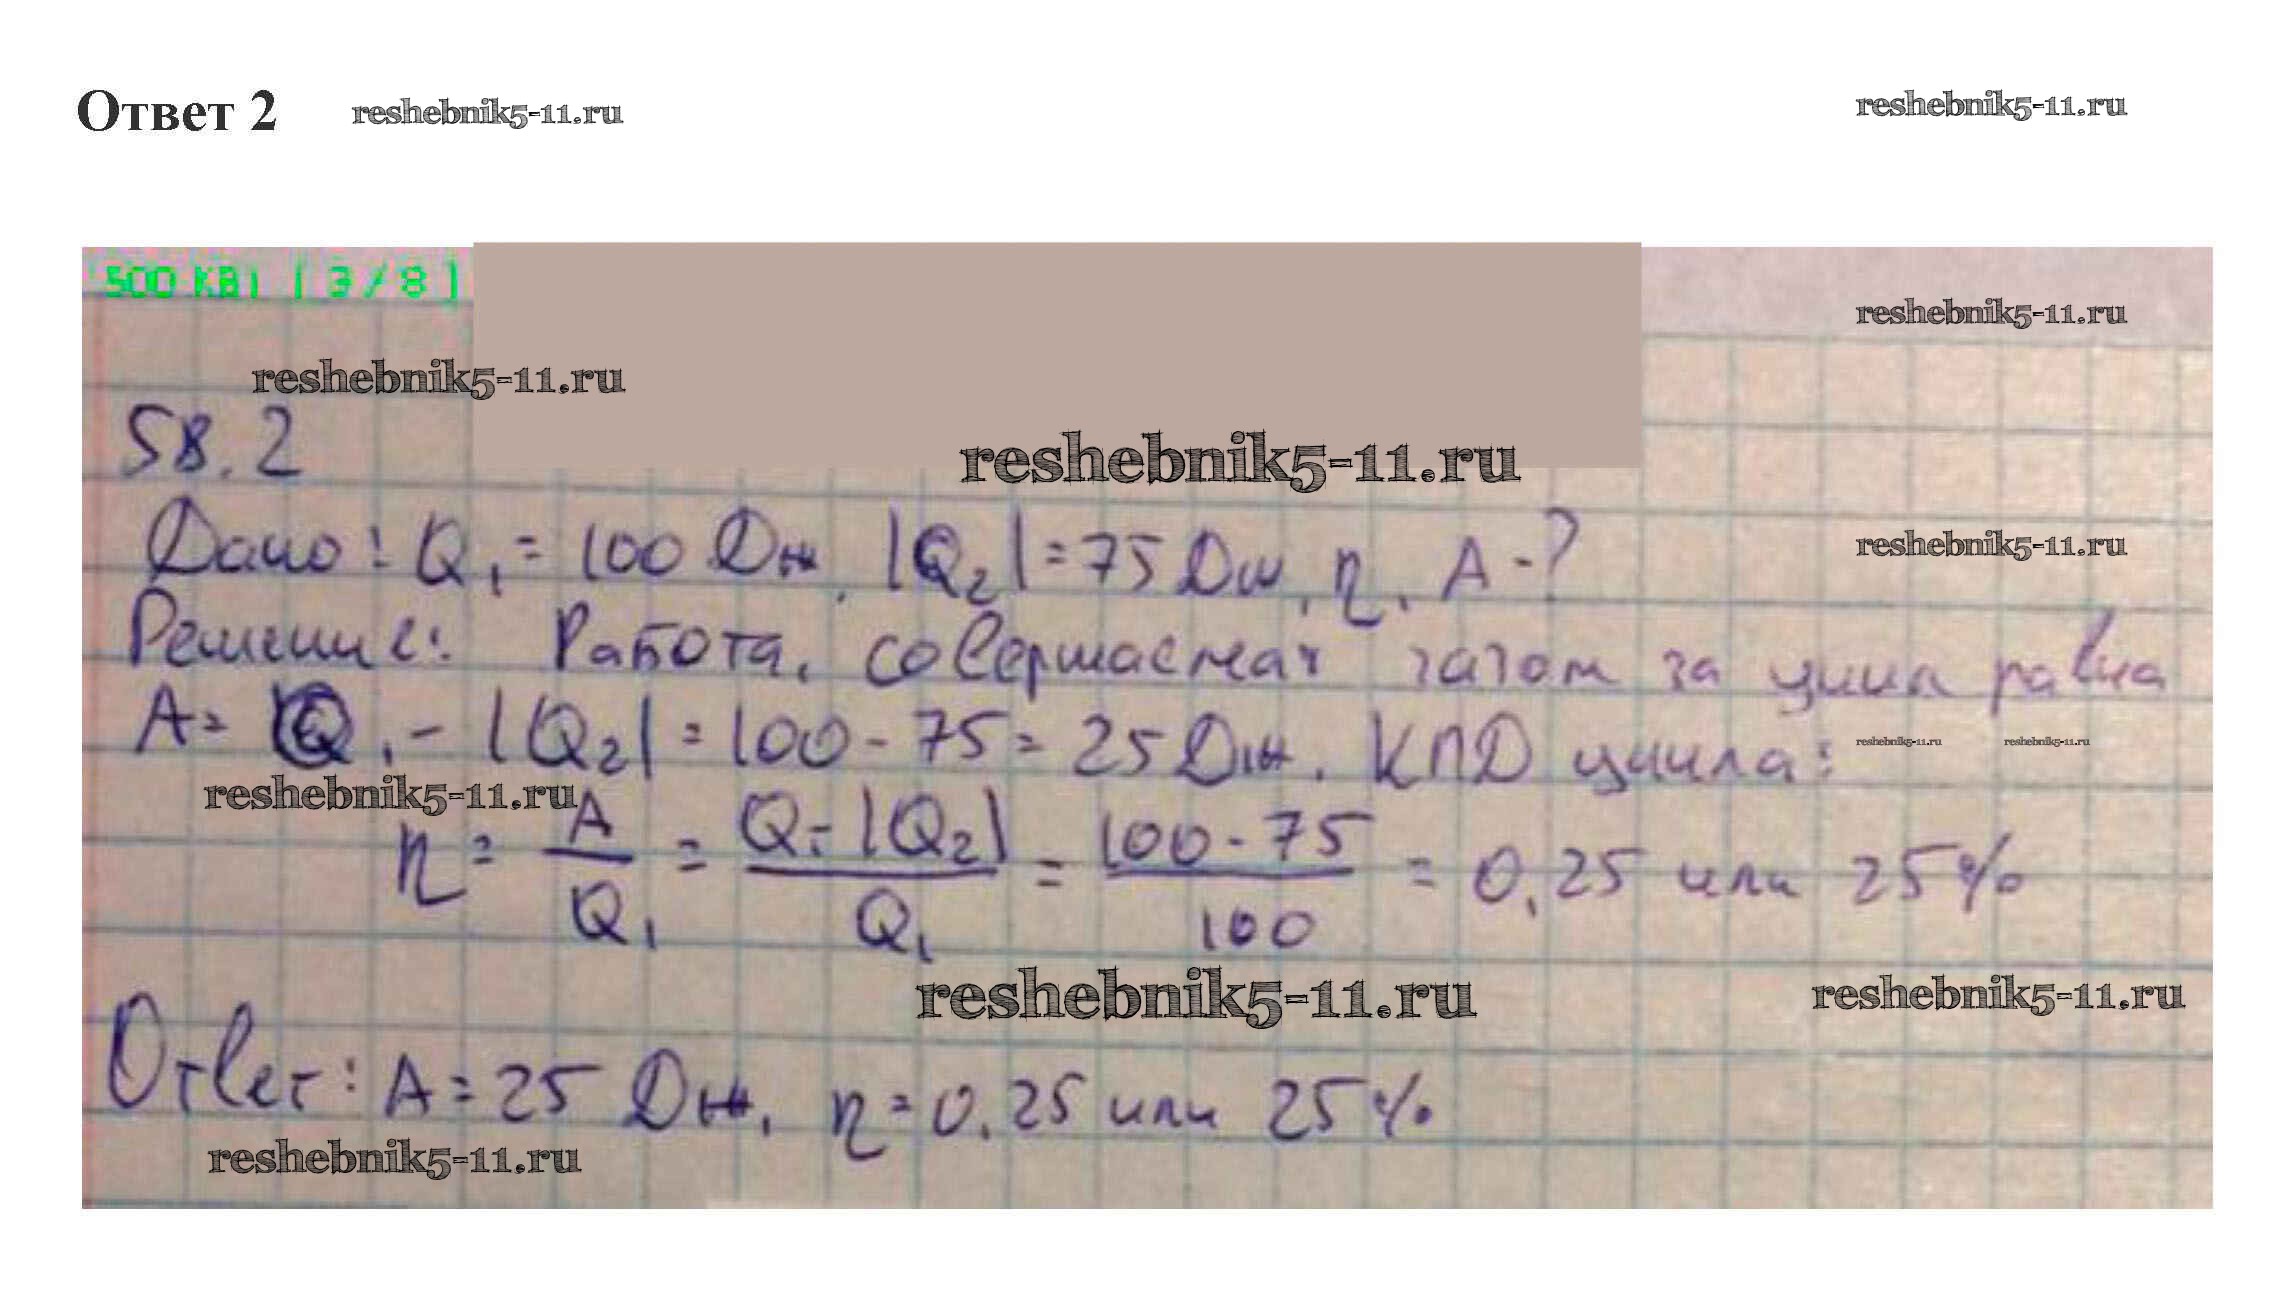 Ответ 2 reshebnik5-11.ru reshebnik5-11.ru
500 КВт [ 3 / 8 ]
reshebnik5-11.ru
reshebnik5-11.ru
58.2
reshebnik5-11.ru
Дано: Q₁ = 100 Дж, |Q₂| = 75 Дж, η, A - ?
reshebnik5-11.ru
Решение: Работа, совершаемая газом за цикл равна
A = Q₁ - |Q₂| = 100 - 75 = 25 Дж. КПД цикла:
reshebnik5-11.ru reshebnik5-11.ru
reshebnik5-11.ru
η = A / Q₁ = Q₁ - |Q₂| / Q₁ = 100 - 75 / 100 = 0,25 или 25%
reshebnik5-11.ru reshebnik5-11.ru
Ответ: A = 25 Дж, η = 0,25 или 25%
reshebnik5-11.ru